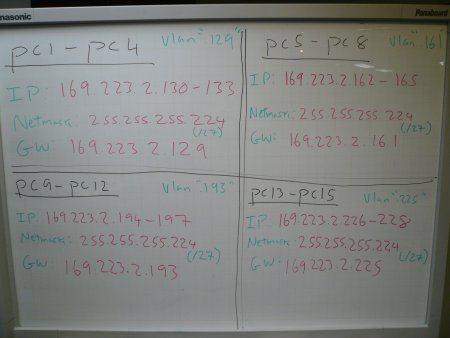 Panasonic
Panaboard
pc1 - pc4 Vlan "129"
IP: 169.223.2.130 - 133
Netmask: 255.255.255.224
(/27)
GW: 169.223.2.129
pc5 - pc8 Vlan "161"
IP: 169.223.2.162 - 165
Netmask: 255.255.255.224
(/27)
GW: 169.223.2.161
pc9 - pc12 Vlan "193"
IP: 169.223.2.194 - 197
Netmask: 255.255.255.224
(/27)
GW: 169.223.2.193
pc13 - pc15 Vlan "225"
IP: 169.223.2.226 - 228
Netmask: 255.255.255.224
(/27)
GW: 169.223.2.225